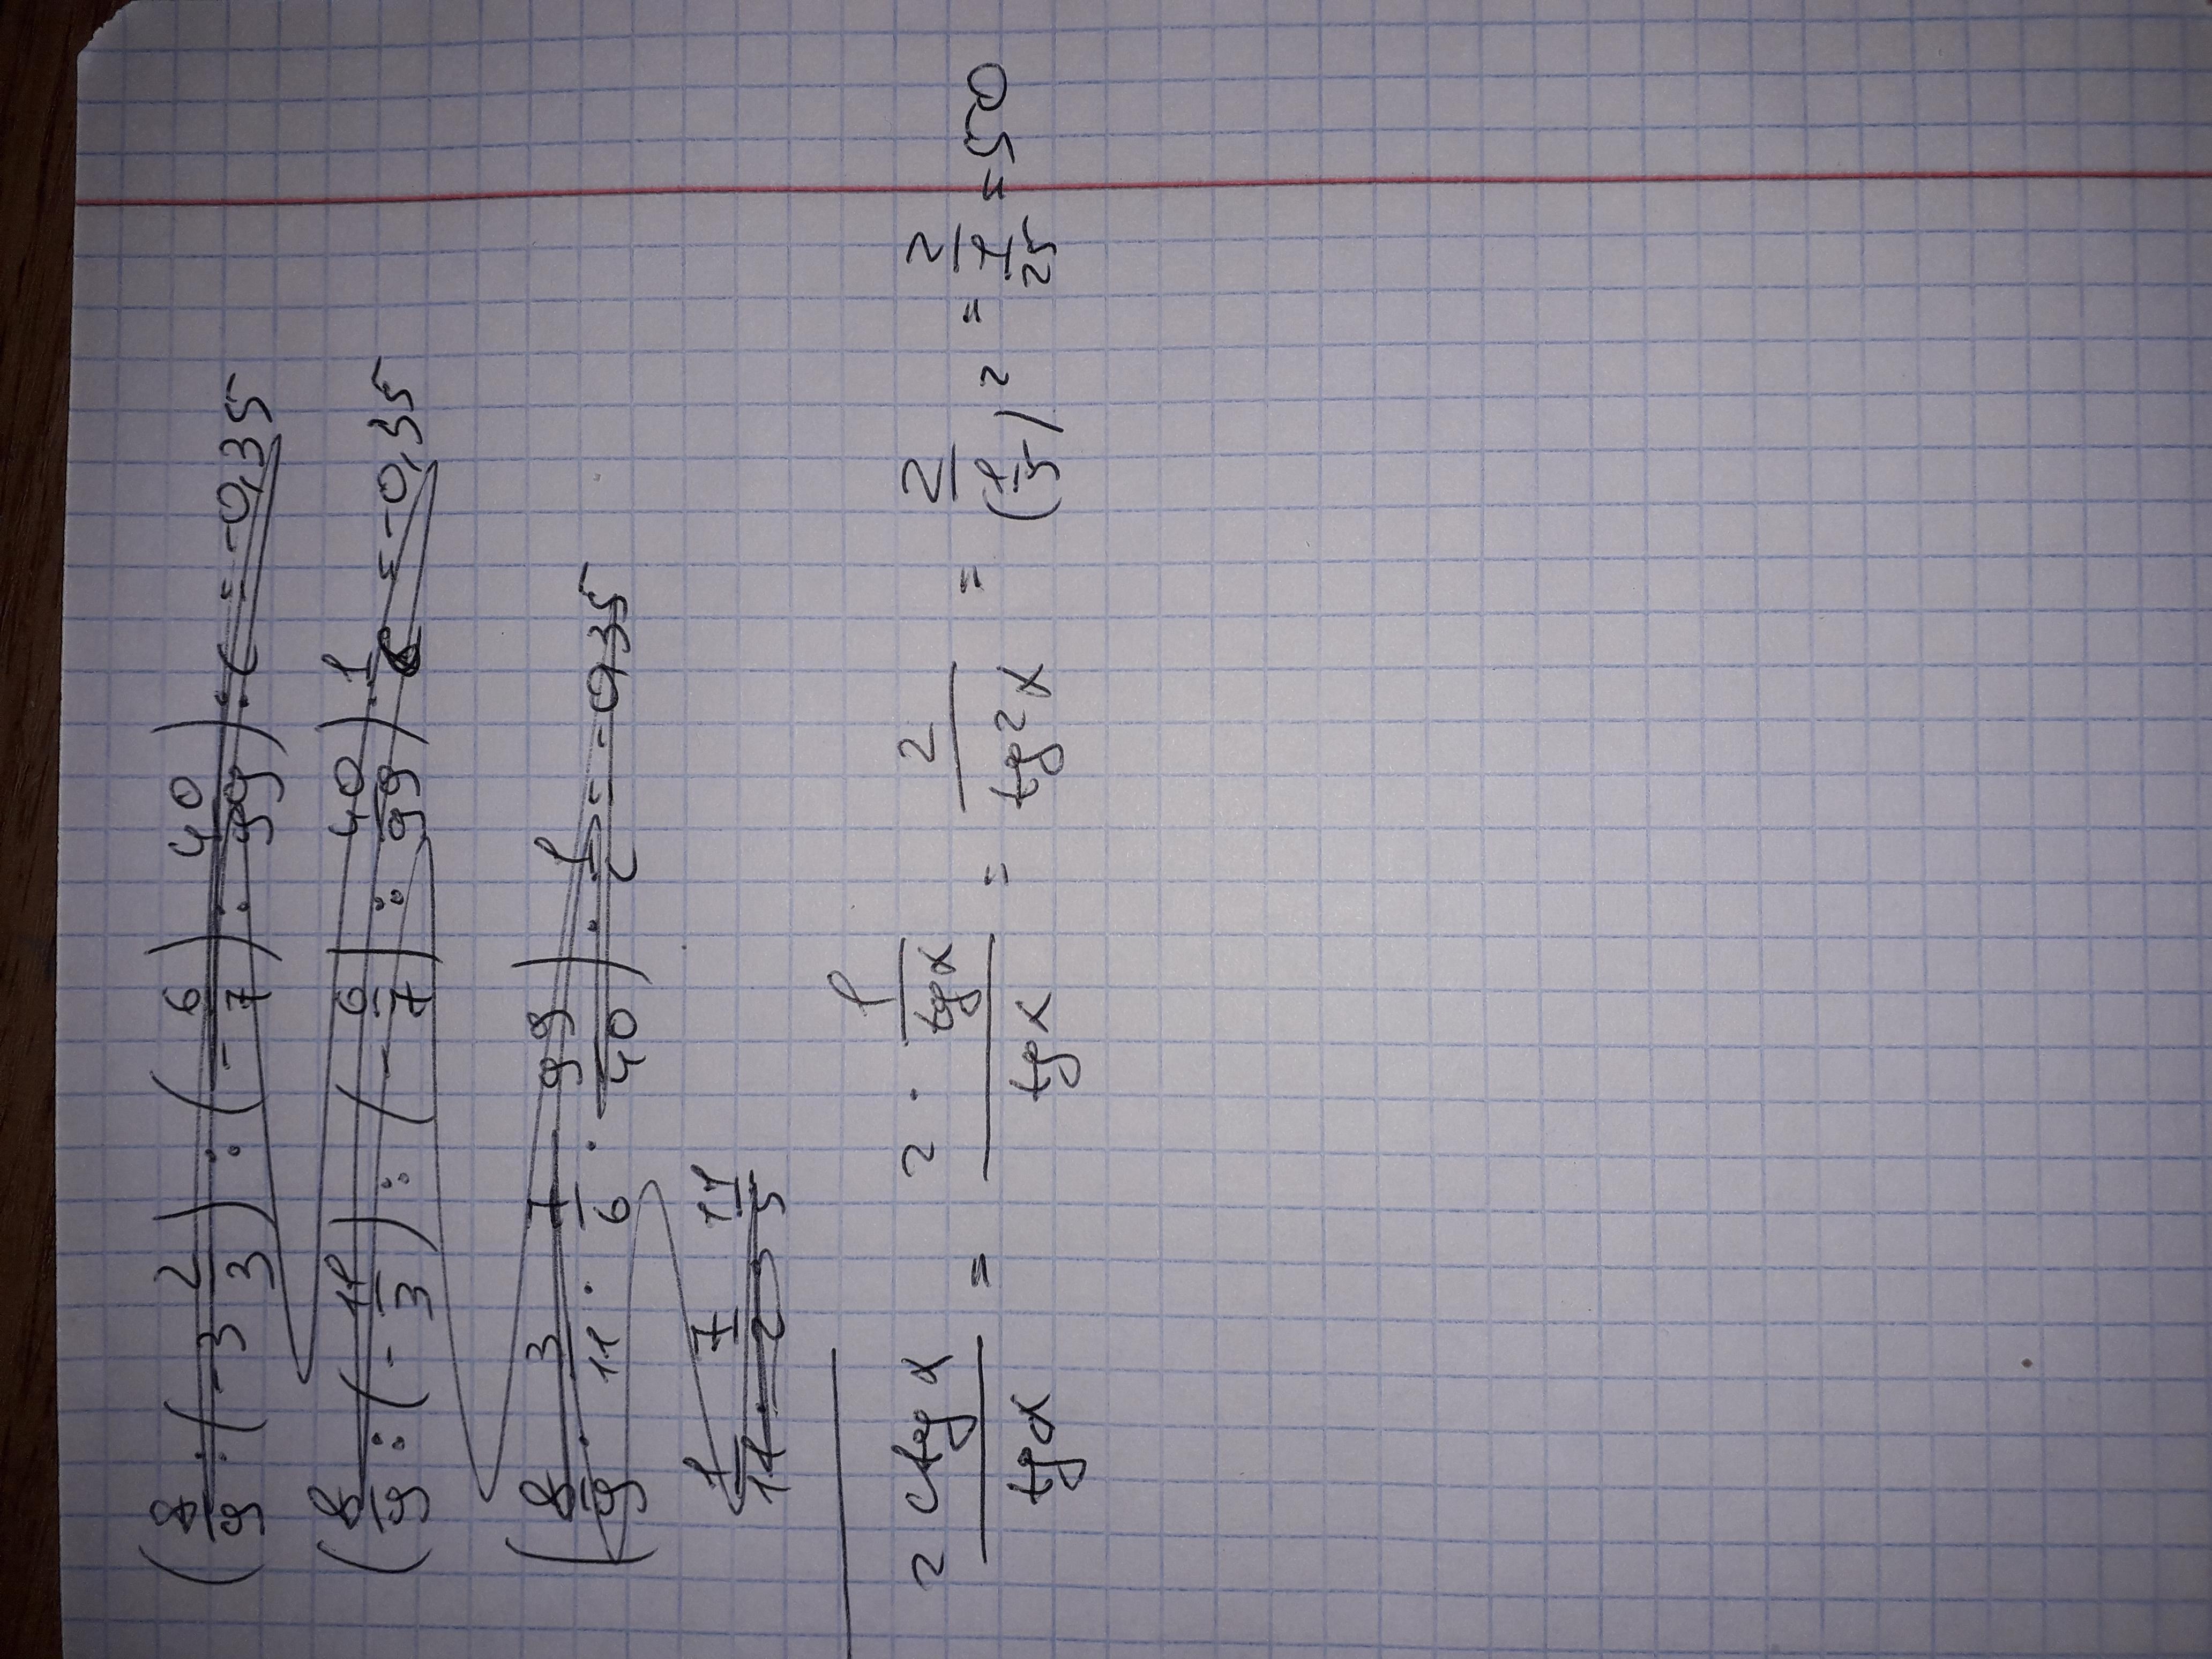 (8/9 : (-3 2/3) : (-6/7) : 40/99) : c = -0,35
(8/9 : (-11/3) : (-6/7) : 40/99) · 1/c = -0,35
(8/9 · 3/11 · 7/6 · 99/40) · 1/c = -0,35
2 ctg x / tg x = 2 · 1/tg x / tg x = 2 / tg² x = 2 / (1/5)² = 2 / 1/25 = 50